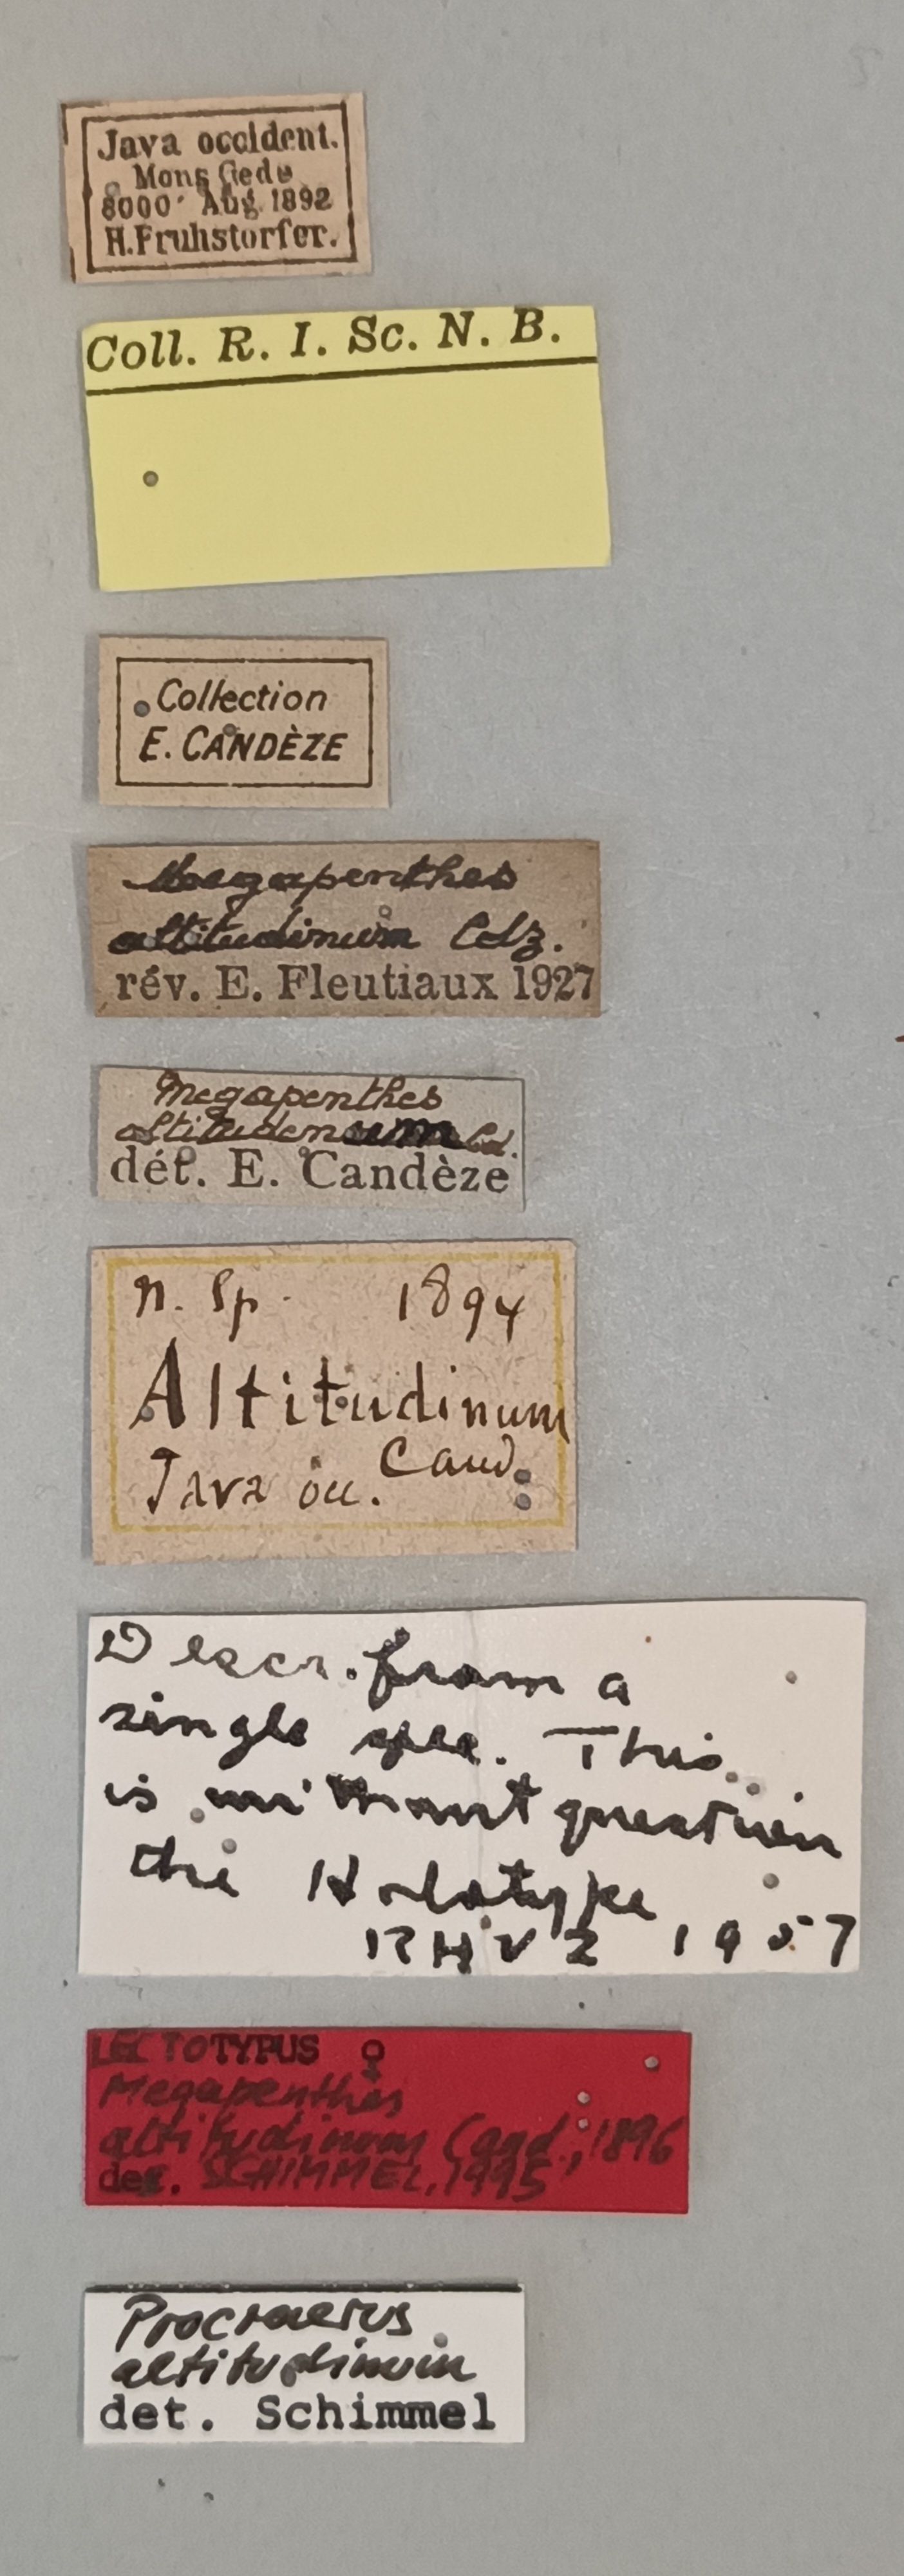 Java occident.
Mons Gede
8000' Aug. 1892
H. Fruhstorfer.
Coll. R. I. Sc. N. B.
Collection
E. CANDÈZE
Megapenthes
altitudinum Cdz.
rév. E. Fleutiaux 1927
Megapenthes
altitudinum Cd.
dét. E. Candèze
n. Sp. 1894
Altitudinum
Cand.
Java oc.
Descr. from a
single spec. This
is without question
the Holotype
RHVZ 1957
LECTOTYPUS ♀
Megapenthes
altitudinum Cand., 1896
des. SCHIMMEL, 1995
Procraerus
altitudinum
det. Schimmel